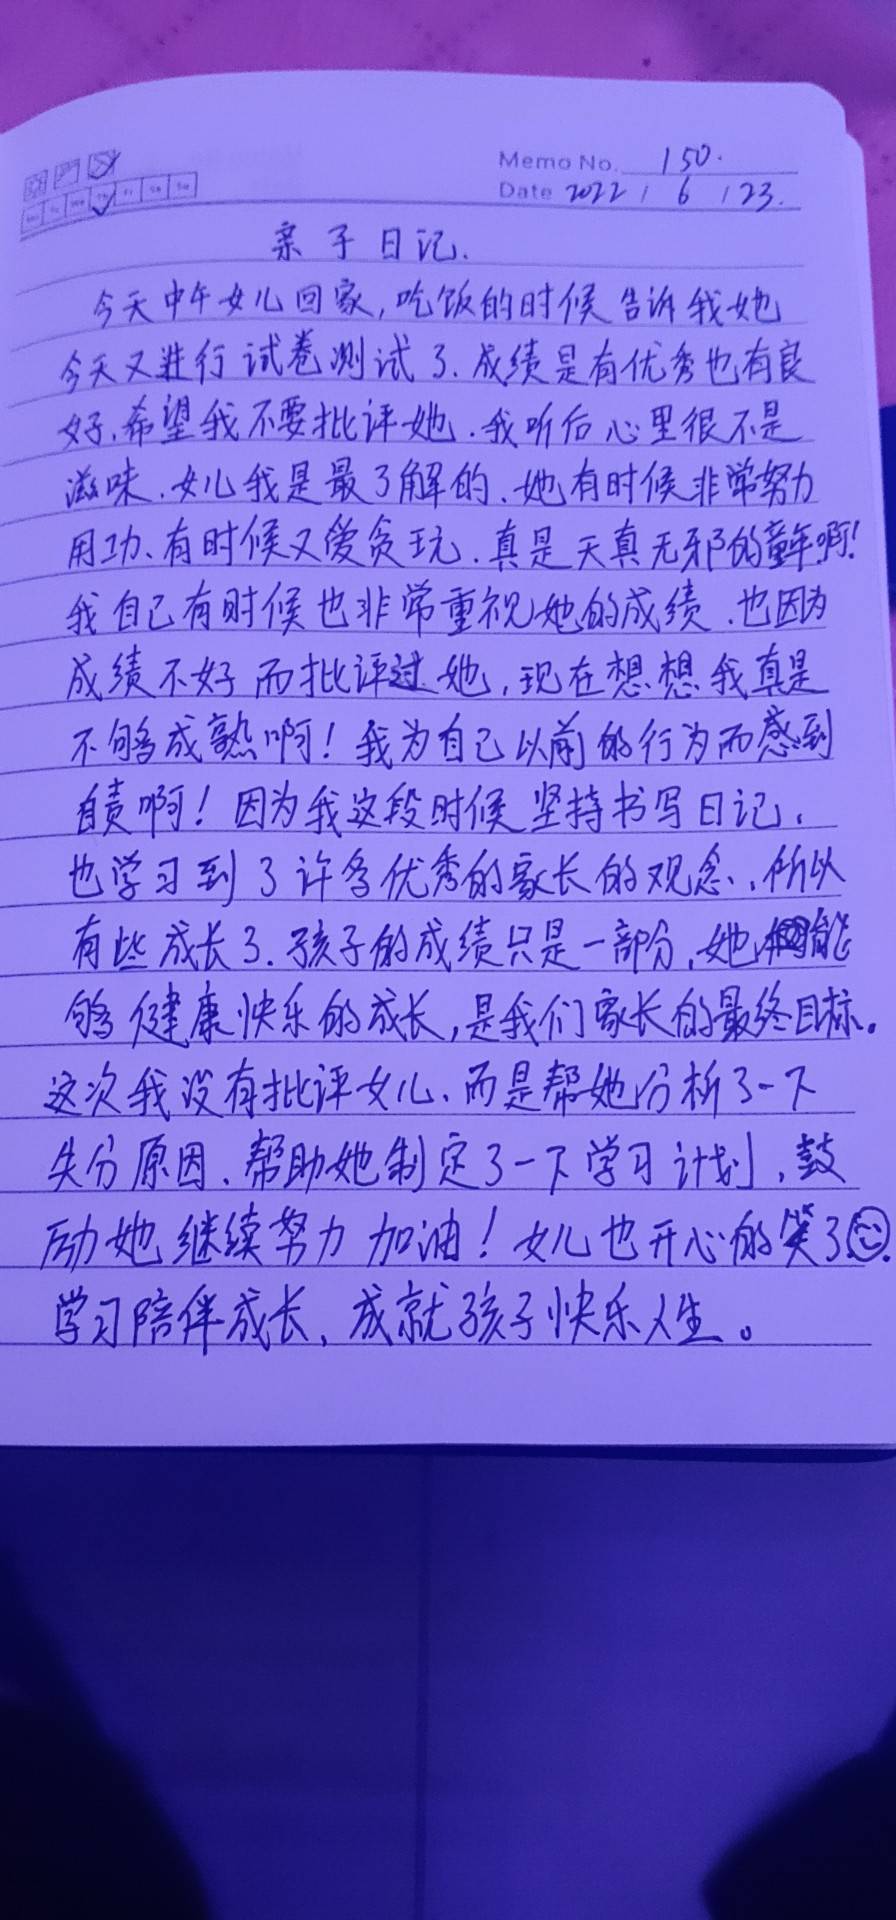 Memo No. 150.
Date 2022 / 6 / 23.
亲子日记.
今天中午女儿回家,吃饭的时候告诉我她
今天又进行试卷测试了.成绩是有优秀也有良
好,希望我不要批评她.我听后心里很不是
滋味.女儿我是最了解的.她有时候非常努力
用功、有时候又爱贪玩.真是天真无邪的童年啊!
我自己有时候也非常重视她的成绩.也因为
成绩不好而批评过她,现在想想我真是
不够成熟啊!我为自己以前的行为而感到
自责啊!因为我这段时候坚持书写日记,
也学习到了许多优秀的家长的观念.,所以
有些成长了.孩子的成绩只是一部分,她能
够健康快乐的成长,是我们家长的最终目标。
这次我没有批评女儿、而是帮她分析了一下
失分原因、帮助她制定了一下学习计划,鼓
励她继续努力加油!女儿也开心的笑了.
学习陪伴成长、成就孩子快乐人生。